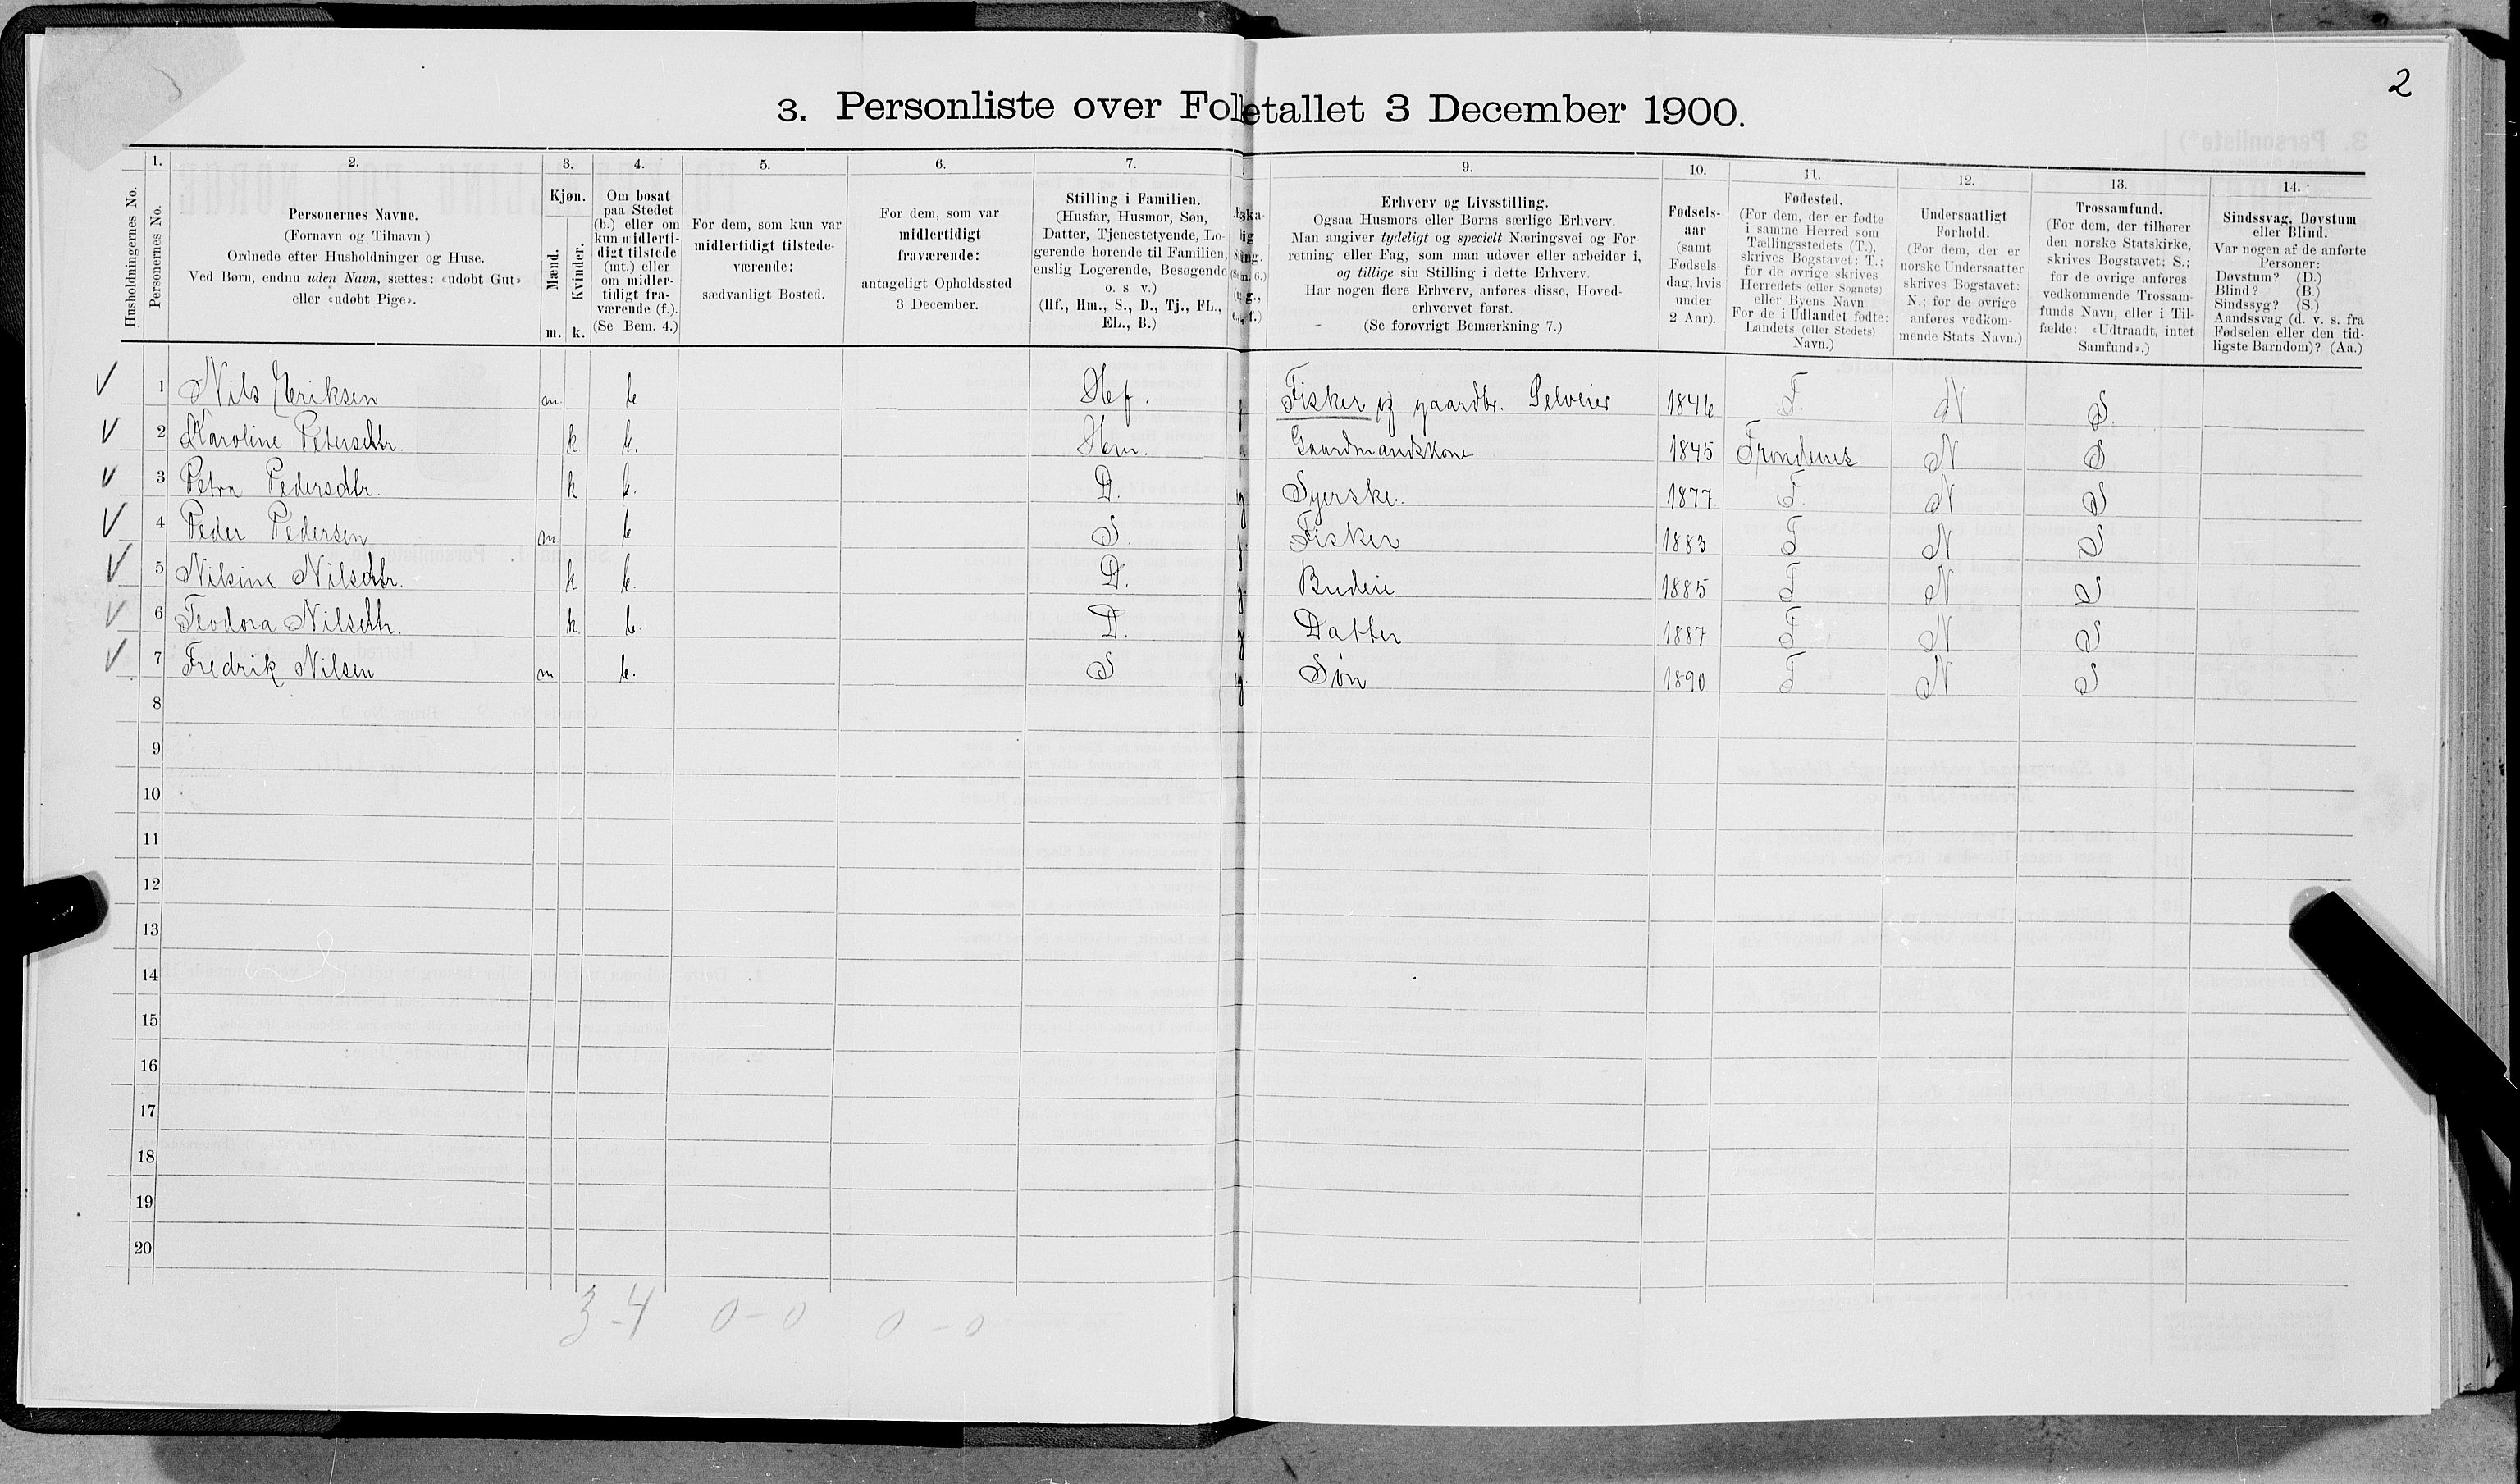 2
3. Personliste over Folketallet 3 December 1900.
1.
2.
3.
4.
5.
6.
7.
9.
10.
11.
12.
13.
14.
Husholdningernes No.
Personernes No.
Personernes Navne.
(Fornavn og Tilnavn)
Ordnede efter Husholdninger og Huse.
Ved Børn, endnu uden Navn, sættes: «udøbt Gut»
eller «udøbt Pige».
Kjøn.
Mænd.
Kvinder.
m. k.
Om bosat
paa Stedet
(b.) eller om
kun midlerti-
digt tilstede
(mt.) eller
om midler-
tidigt fra-
værende (f.).
(Se Bem. 4.)
For dem, som kun var
midlertidigt tilstede-
værende:
sædvanligt Bosted.
For dem, som var
midlertidigt
fraværende:
antageligt Opholdssted
3 December.
Stilling i Familien.
(Husfar, Husmor, Søn,
Datter, Tjenestetyende, Lo-
gerende hørende til Familien,
enslig Logerende, Besøgende
o. s. v.)
(Hf., Hm., S., D., Tj., FL.,
EL., B.)
Erhverv og Livsstilling.
Ogsaa Husmors eller Børns særlige Erhverv.
Man angiver tydeligt og specielt Næringsvei og For-
retning eller Fag, som man udøver eller arbeider i,
og tillige sin Stilling i dette Erhverv.
Har nogen flere Erhverv, anføres disse, Hoved-
erhvervet først.
(Se forøvrigt Bemærkning 7.)
Fødsels-
aar
(samt
Fødsels-
dag, hvis
under
2 Aar).
Fødested.
(For dem, der er fødte
i samme Herred som
Tællingsstedets (T.),
skrives Bogstavet: T.;
for de øvrige skrives
Herredets (eller Sognets)
eller Byens Navn
For de i Udlandet fødte:
Landets (eller Stedets)
Navn.)
Undersaatligt
Forhold.
(For dem, der er
norske Undersaatter
skrives Bogstavet:
N.; for de øvrige
anføres vedkom-
mende Stats Navn.)
Trossamfund.
(For dem, der tilhører
den norske Statskirke,
skrives Bogstavet: S.;
for de øvrige anføres
vedkommende Trossam-
funds Navn, eller i Til-
fælde: «Udtraadt, intet
Samfund».)
Sindssvag, Døvstum
eller Blind.
Var nogen af de anførte
Personer:
Døvstum? (D.)
Blind? (B.)
Sindssyg? (S.)
Aandssvag (d. v. s. fra
Fødselen eller den tid-
ligste Barndom)? (Aa.)
1 Nils Eriksen m b Hf. Fisker og gaardbr. Selveier 1846 T. N S.
2 Karoline Petersdtr. k b. Hm. Gaardmandskone 1845 Trondenes N S
3 Petra Pedersdtr. k b. D. Syerske. 1877 T. N S
4 Peder Pedersen m b S. Fisker 1883 T N S
5 Nilsine Nilsdtr. k b. D. Budeie 1885 T N S
6 Teodora Nilsdtr. k b. D. Datter 1887 T N S
7 Fredrik Nilsen m b. S Søn 1890 T N S
8
9
10
11
12
13
14
15
16
17
18
19
20
3-4 0-0 0-0